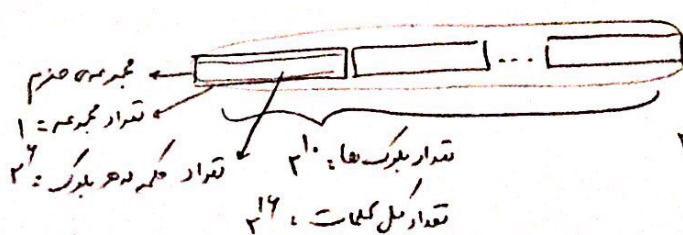 مجموعه‌ی صفرم
...
تعداد مجموعه: ۱
تعداد کلمه در هر بلوک: ۲^۶
تعداد بلوک‌ها: ۲^۱۰
تعداد کل کلمات: ۲^۱۶